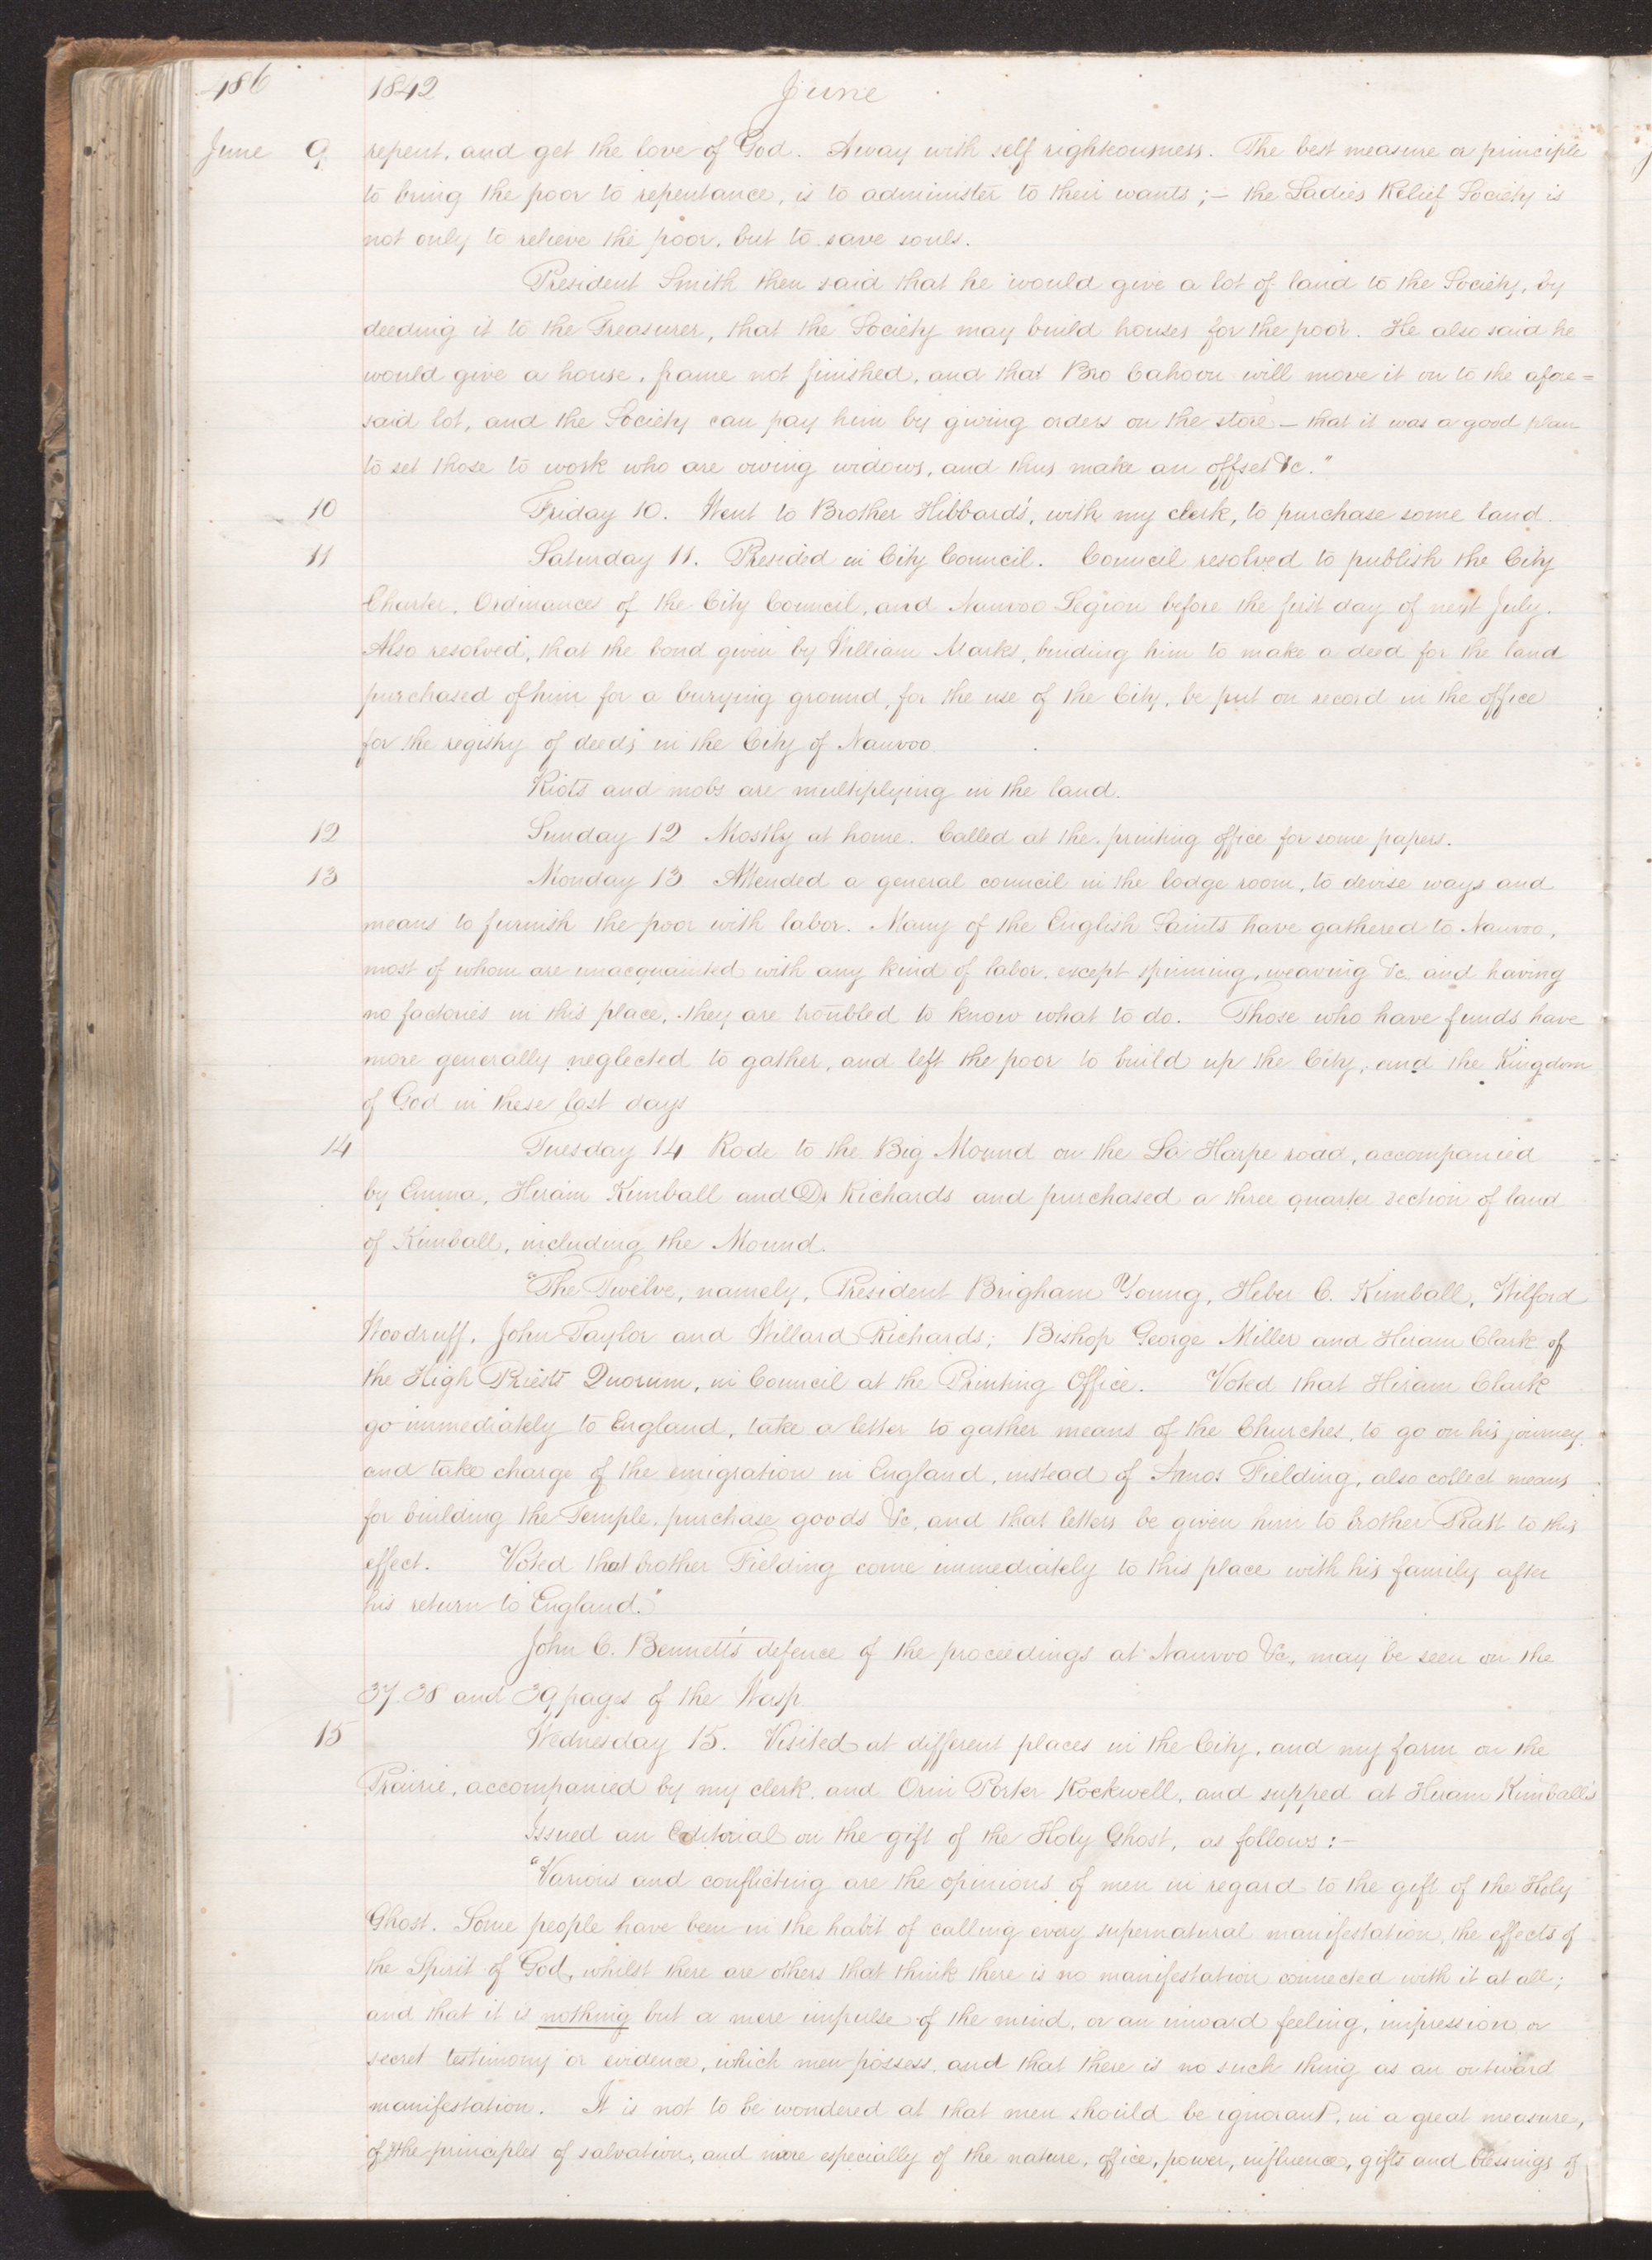 486 1842 June
June 9 repent, and get the love of God. Away with self righteousness. The best measure or principle
to bring the poor to repentance, is to administer to their wants;— the Ladies Relief Society is
not only to relieve the poor, but to save souls.
President Smith then said that he would give a lot of land to the Society, by
deeding it to the Treasurer, that the Society may build houses for the poor. He also said he
would give a house, frame not finished, and that Bro Cahoon will move it on to the afore=
said lot, and the Society can pay him by giving orders on the store — that it was a good plan
to set those to work who are owing widows, and thus make an offset &c."
10 Friday 10. Went to Brother Hibbard's, with my clerk, to purchase some land.
11 Saturday 11. Presided in City Council. Council resolved to publish the City
Charter, Ordinances of the City Council, and Nauvoo Legion before the first day of next July.
Also resolved, that the bond given by William Marks, binding him to make a deed for the land
purchased of him for a burying ground, for the use of the City, be put on record in the office
for the registry of deeds in the City of Nauvoo.
Riots and mobs are multiplying in the land.
12 Sunday 12 Mostly at home. Called at the printing office for some papers.
13 Monday 13 Attended a general council in the lodge room, to devise ways and
means to furnish the poor with labor. Many of the English Saints have gathered to Nauvoo,
most of whom are unacquainted with any kind of labor, except spinning, weaving &c. and having
no factories in this place, they are troubled to know what to do. Those who have funds have
more generally neglected to gather, and left the poor to build up the City, and the Kingdom
of God in these last days
14 Tuesday 14 Rode to the Big Mound on the La Harpe road, accompanied
by Emma, Hiram Kimball and Dr Richards and purchased a three quarter section of land
of Kimball, including the Mound.
"The Twelve, namely, President Brigham Young, Heber C. Kimball, Wilford
Woodruff, John Taylor and Willard Richards; Bishop George Miller and Hiram Clark of
the High Priests Quorum, in Council at the Printing Office. Voted that Hiram Clark
go immediately to England, take a letter to gather means of the Churches, to go on his journey,
and take charge of the emigration in England, instead of Amos Fielding, also collect means
for building the Temple, purchase goods &c, and that letters be given him to brother Pratt to this
effect. Voted that brother Fielding come immediately to this place with his family after
his return to England."
John C. Bennett's defence of the proceedings at Nauvoo &c, may be seen on the
37. 38 and 39 pages of the Wasp.
15 Wednesday 15. Visited at different places in the City, and my farm on the
Prairie, accompanied by my clerk, and Orin Porter Rockwell, and supped at Hiram Kimball's
Issued an Editorial on the gift of the Holy Ghost, as follows:—
"Various and conflicting are the opinions of men in regard to the gift of the Holy
Ghost. Some people have been in the habit of calling every supernatural manifestation, the effects of
the Spirit of God, whilst there are others that think there is no manifestation connected with it at all;
and that it is nothing but a mere impulse of the mind, or an inward feeling, impression or
secret testimony or evidence, which men possess, and that there is no such thing as an outward
manifestation. It is not to be wondered at that men should be ignorant, in a great measure,
of the principles of salvation, and more especially of the nature, office, power, influence, gifts and blessings of